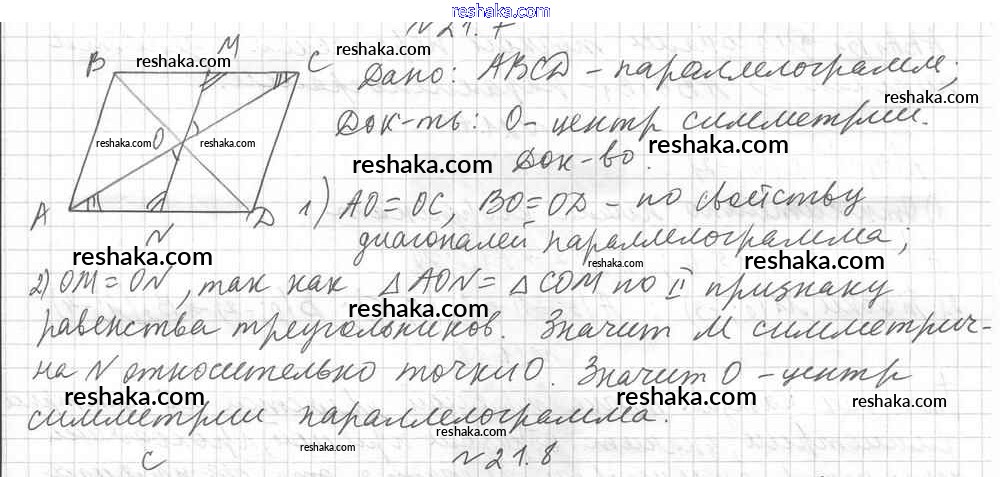 reshaka.com
№21.7
B M C
reshaka.com reshaka.com
Дано: ABCD – параллелограмм;
reshaka.com
Док-ть: O – центр симметрии.
reshaka.com O reshaka.com
reshaka.com Док-во. reshaka.com
A N D
1) AO=OC, BO=OD – по свойству
reshaka.com
диагоналей параллелограмма;
reshaka.com reshaka.com reshaka.com
2) OM=ON, так как △AON=△COM по II признаку
reshaka.com reshaka.com
равенства треугольников. Значит M симметрич-
на N относительно точки O. Значит O – центр
reshaka.com reshaka.com reshaka.com
симметрии параллелограмма.
reshaka.com reshaka.com
С №21.8